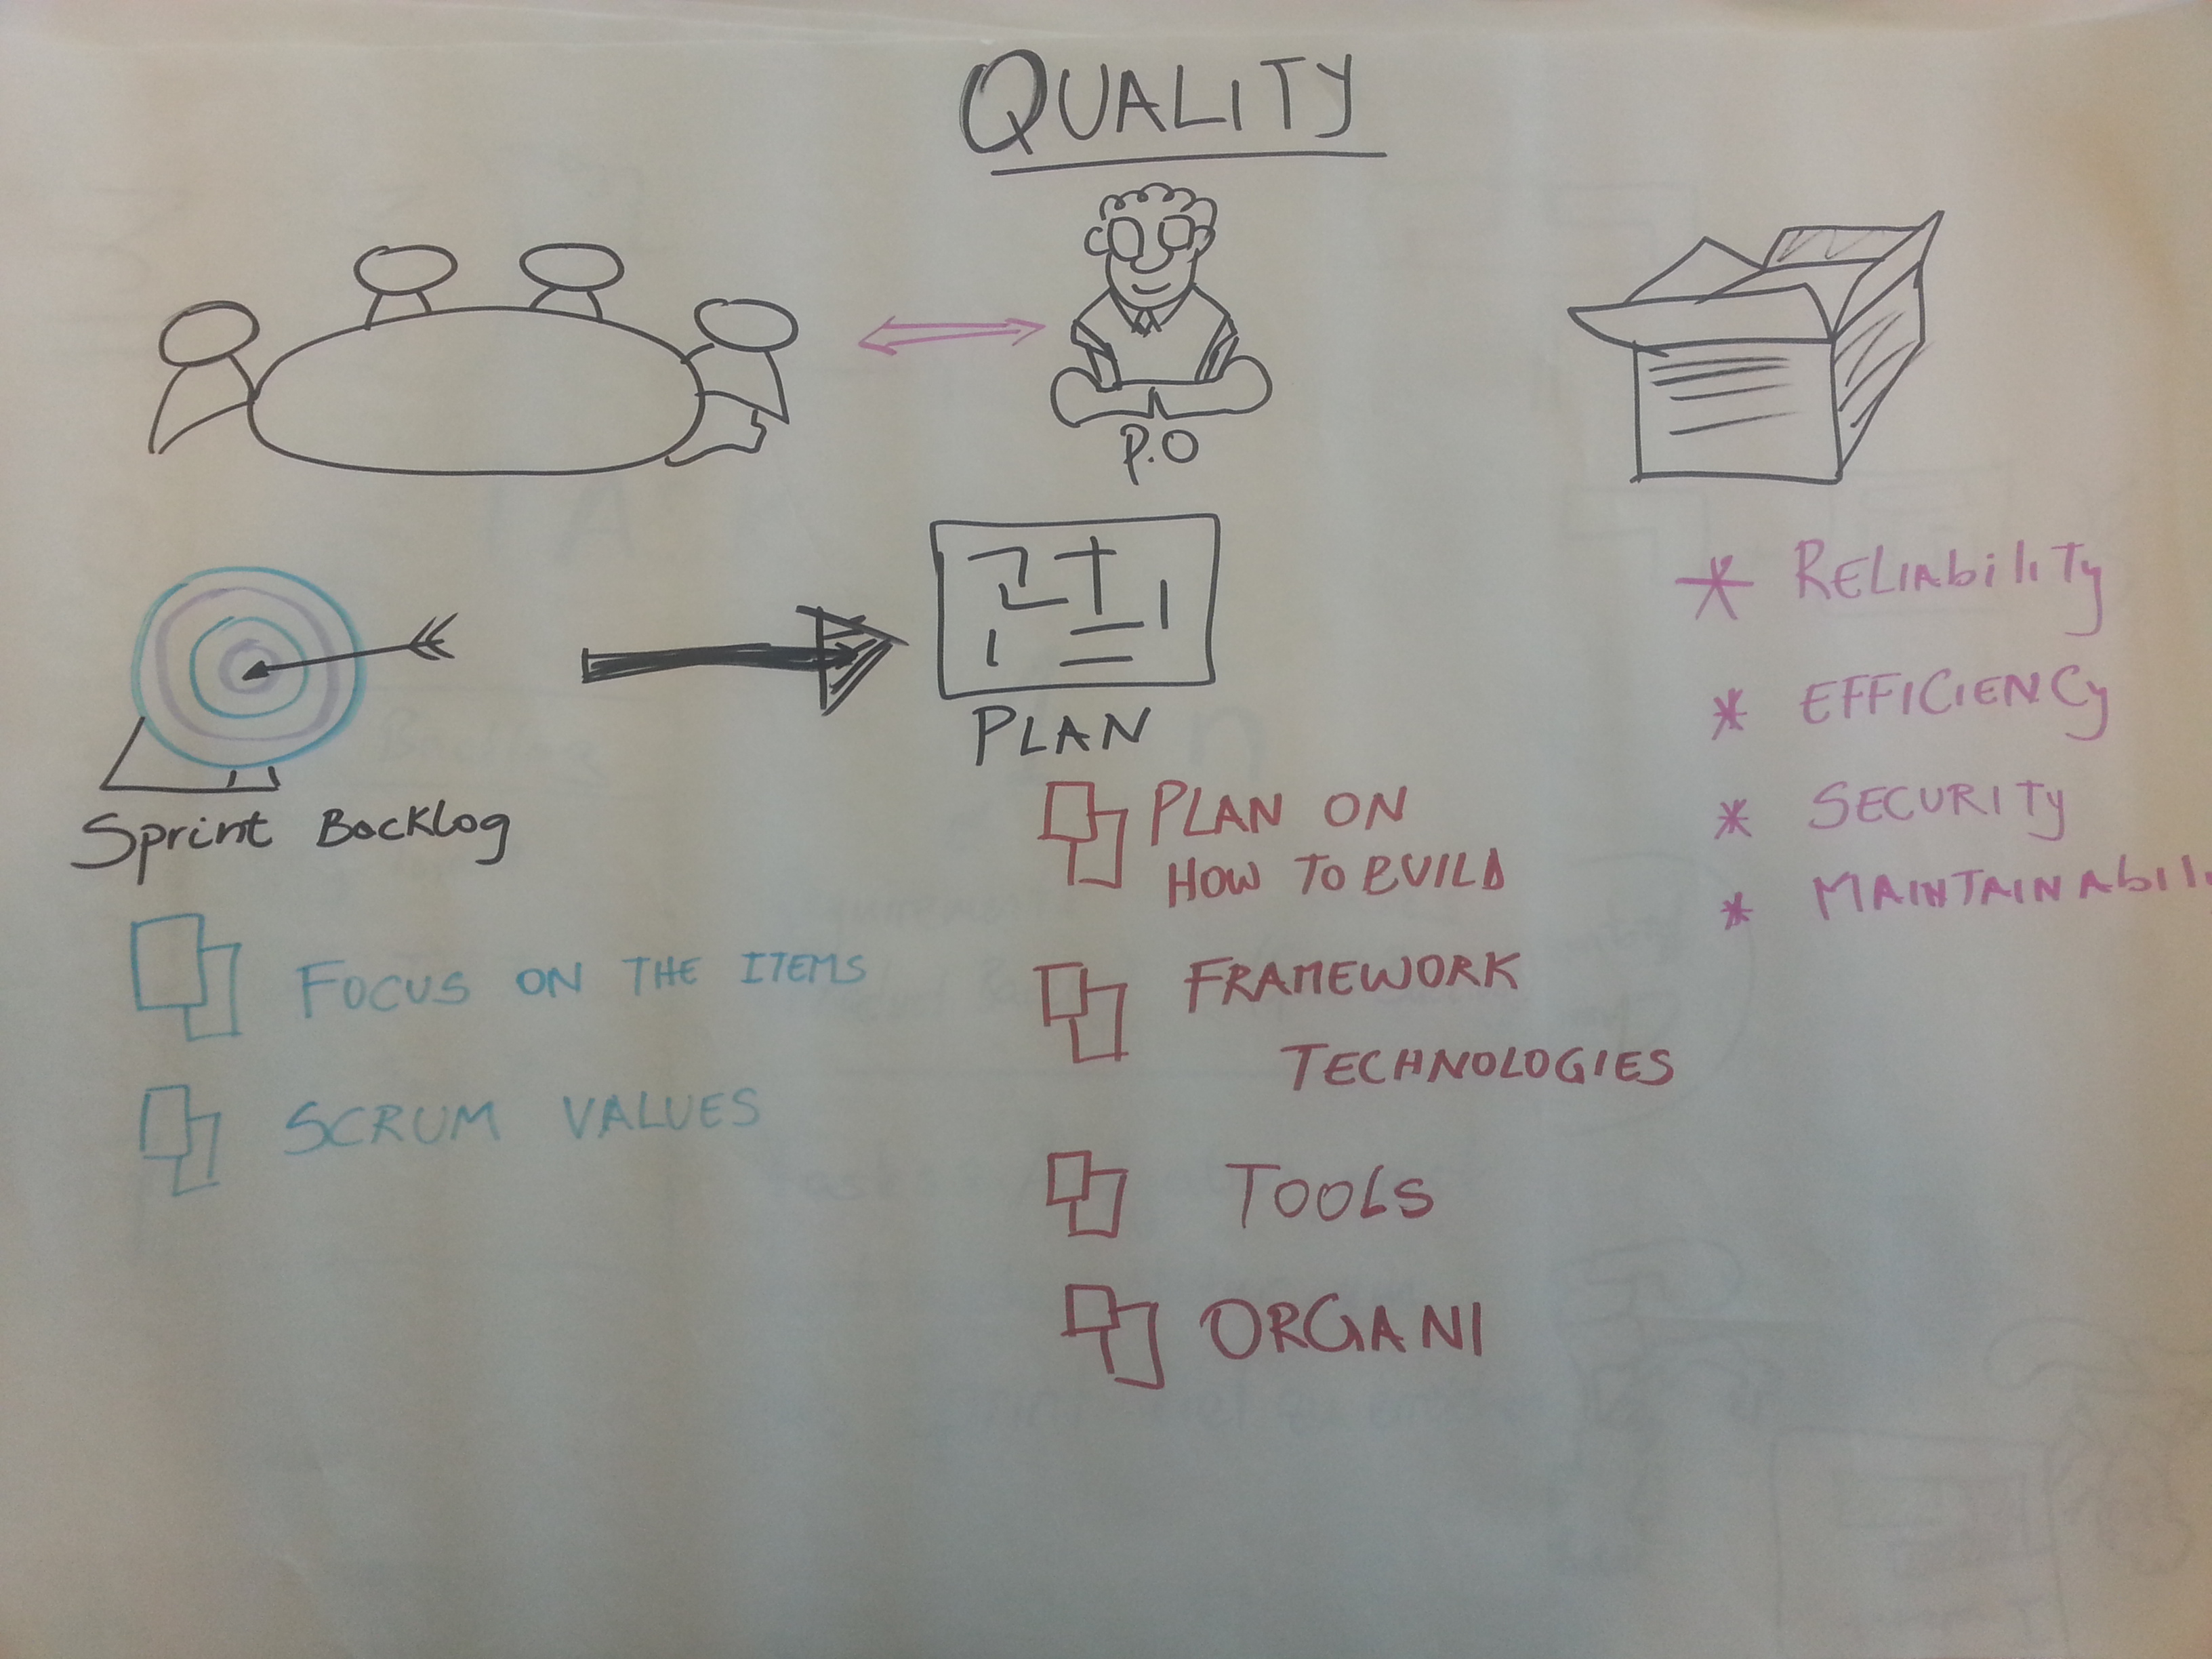 QUALITY
P.O
PLAN
Sprint Backlog
FOCUS ON THE ITEMS
SCRUM VALUES
PLAN ON
HOW TO BUILD
FRAMEWORK
TECHNOLOGIES
TOOLS
ORGANI
* RELIAbiliTy
* EFFICIENCy
* SECURITy
* MAINTAINAbil